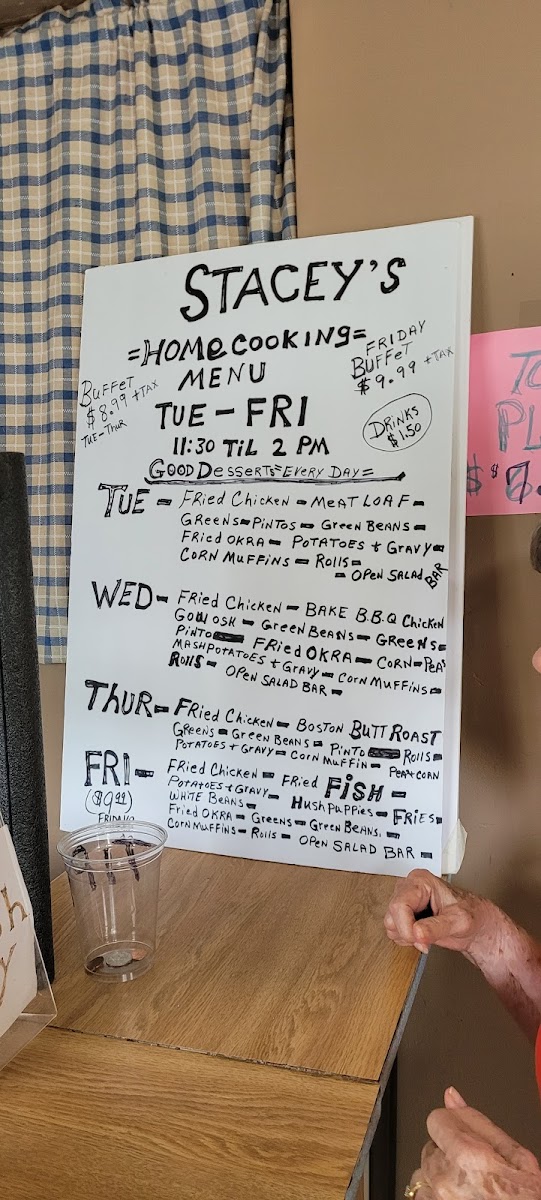 STACEY'S
=HOMeCOOKING=
MENU
BUFFeT
$8.99 +TAX
TUE-THUR
FRIDAY
BUFFeT
$9.99 +TAX
TUE-FRI
11:30 TiL 2 PM
DRINKS
$1.50
GOOD DesserTs=EVERY DAY=
TUE- FRied CHicKen - MeAT LOAF-
GReeNS-PiNTOS - GReen BeANS-
FRied OKRA - POTATOES + GRAVY-
CORN MUFFiNS - ROLLS-
- OPeN SALAD BAR
WED- FRied CHicKen - BAKE B.B.Q CHicKeN
GOULOSH - GReeN BEANS - GReeNS-
PiNTO FRied OKRA - CORN-PeAS
MASH POTATOES + GRAVY - CORN MUFFiNS-
ROLLS- OPeN SALAD BAR -
THUR- FRied CHicKen - BOSTON BUTT ROAST
GReeNS - GReeN BEANS - PiNTO ROLLS-
POTATOES + GRAVY - CORN MUFFiN - PeA+CORN
FRI- FRied CHicKen - FRied FiSH -
($9.99)
FRIDAYS
POTATOES + GRAVY- HUSHPUPPieS - FRiES-
WHiTE BEANS-
FRied OKRA - GReeNS - GReeN BEANS-
CORN MUFFiNS - ROLLS - OPeN SALAD BAR -
TO
PL
$
h
y